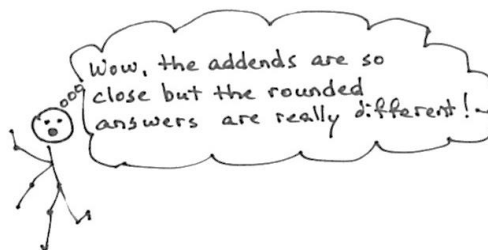 Wow, the addends are so
close but the rounded
answers are really different!